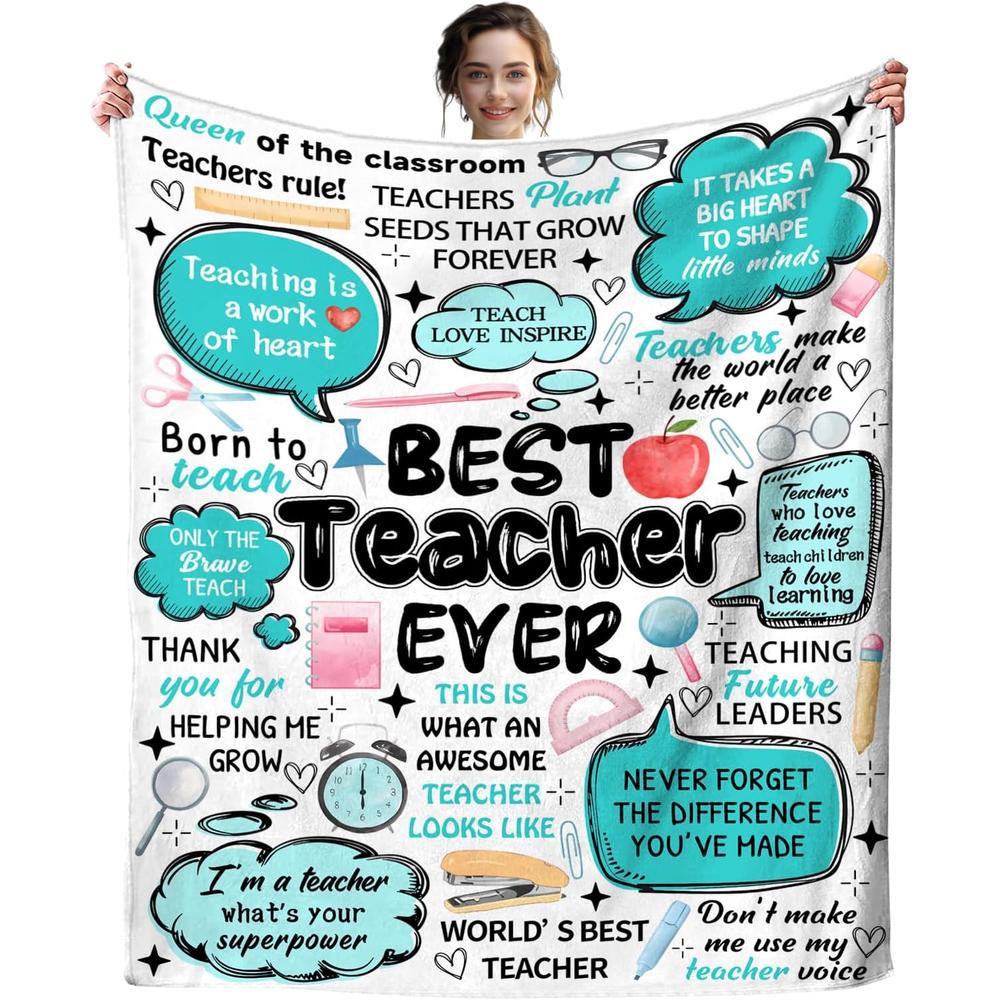 Queen of the classroom
Teachers rule!
TEACHERS Plant
SEEDS THAT GROW
FOREVER
IT TAKES A
BIG HEART
TO SHAPE
little minds
Teaching is
a work
of heart
TEACH
LOVE INSPIRE
Teachers make
the world a
better place
Born to
teach
BEST
Teacher
EVER
Teachers
who love
teaching
teach children
to love
learning
ONLY THE
Brave
TEACH
THANK
you for
HELPING ME
GROW
THIS IS
WHAT AN
AWESOME
TEACHER
LOOKS LIKE
TEACHING
Future
LEADERS
NEVER FORGET
THE DIFFERENCE
YOU'VE MADE
12
1
2
3
4
5
6
7
8
9
10
11
I'm a teacher
what's your
superpower
WORLD'S BEST
TEACHER
Don't make
me use my
teacher voice